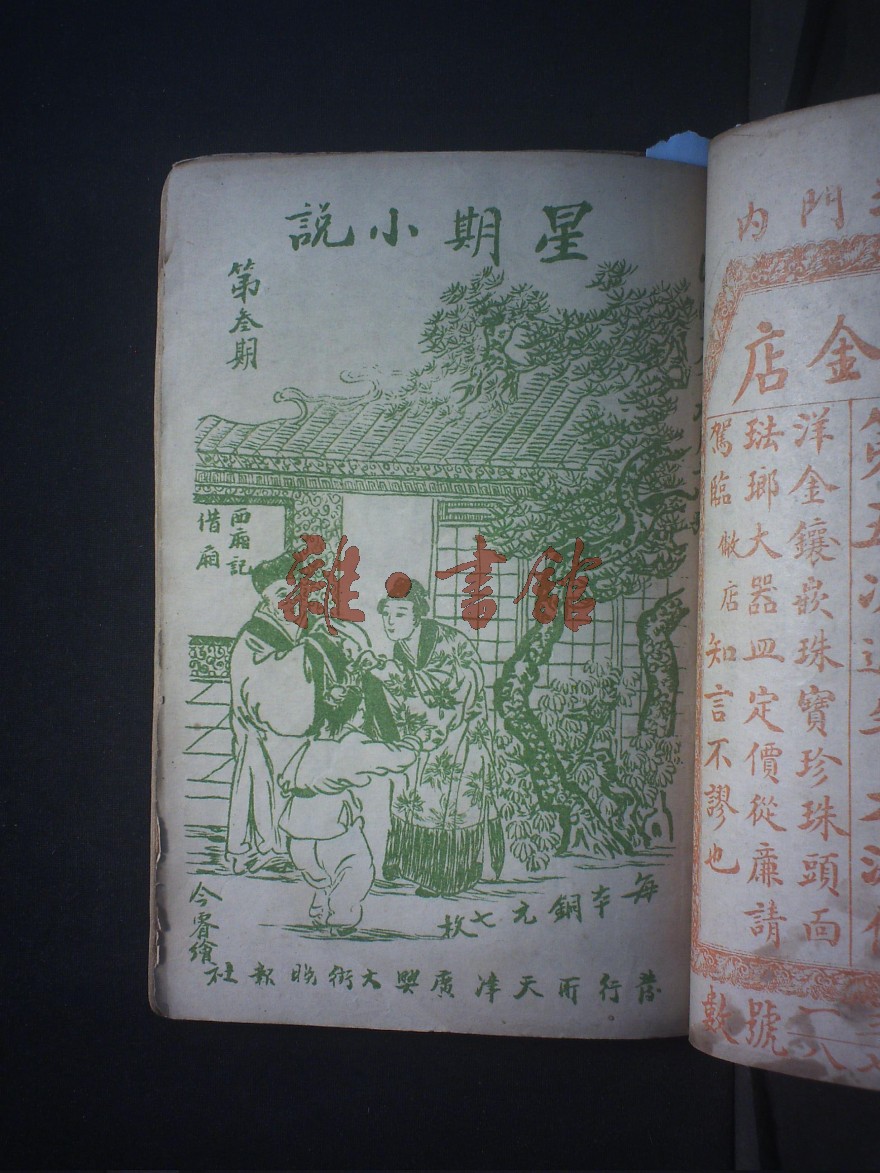 星期小說
第叁期
西廂記
借廂
每本銅元七枚
今睿繪
發行所天津廣興大街晚報社
雜·書館
門內
金店
洋金鑲嵌珠寶珍珠頭面
琺瑯大器皿定價從廉請
駕臨敝店知言不謬也
號數